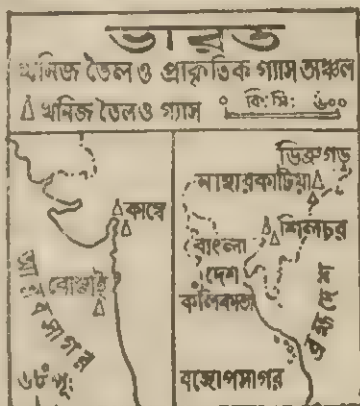 ভারত
খনিজ তৈল ও প্রাকৃতিক গ্যাস অঞ্চল
খনিজ তৈল ও গ্যাস
০ কি: মি: ৬০০
কাম্বে
বোম্বাই
আরব সাগর
৬৮° পূ:
ডিব্রুগড়
নাহারকাটিয়া
শিলচর
বাংলা
দেশ
কলিকাতা
ব্রহ্মদেশ
বঙ্গোপসাগর